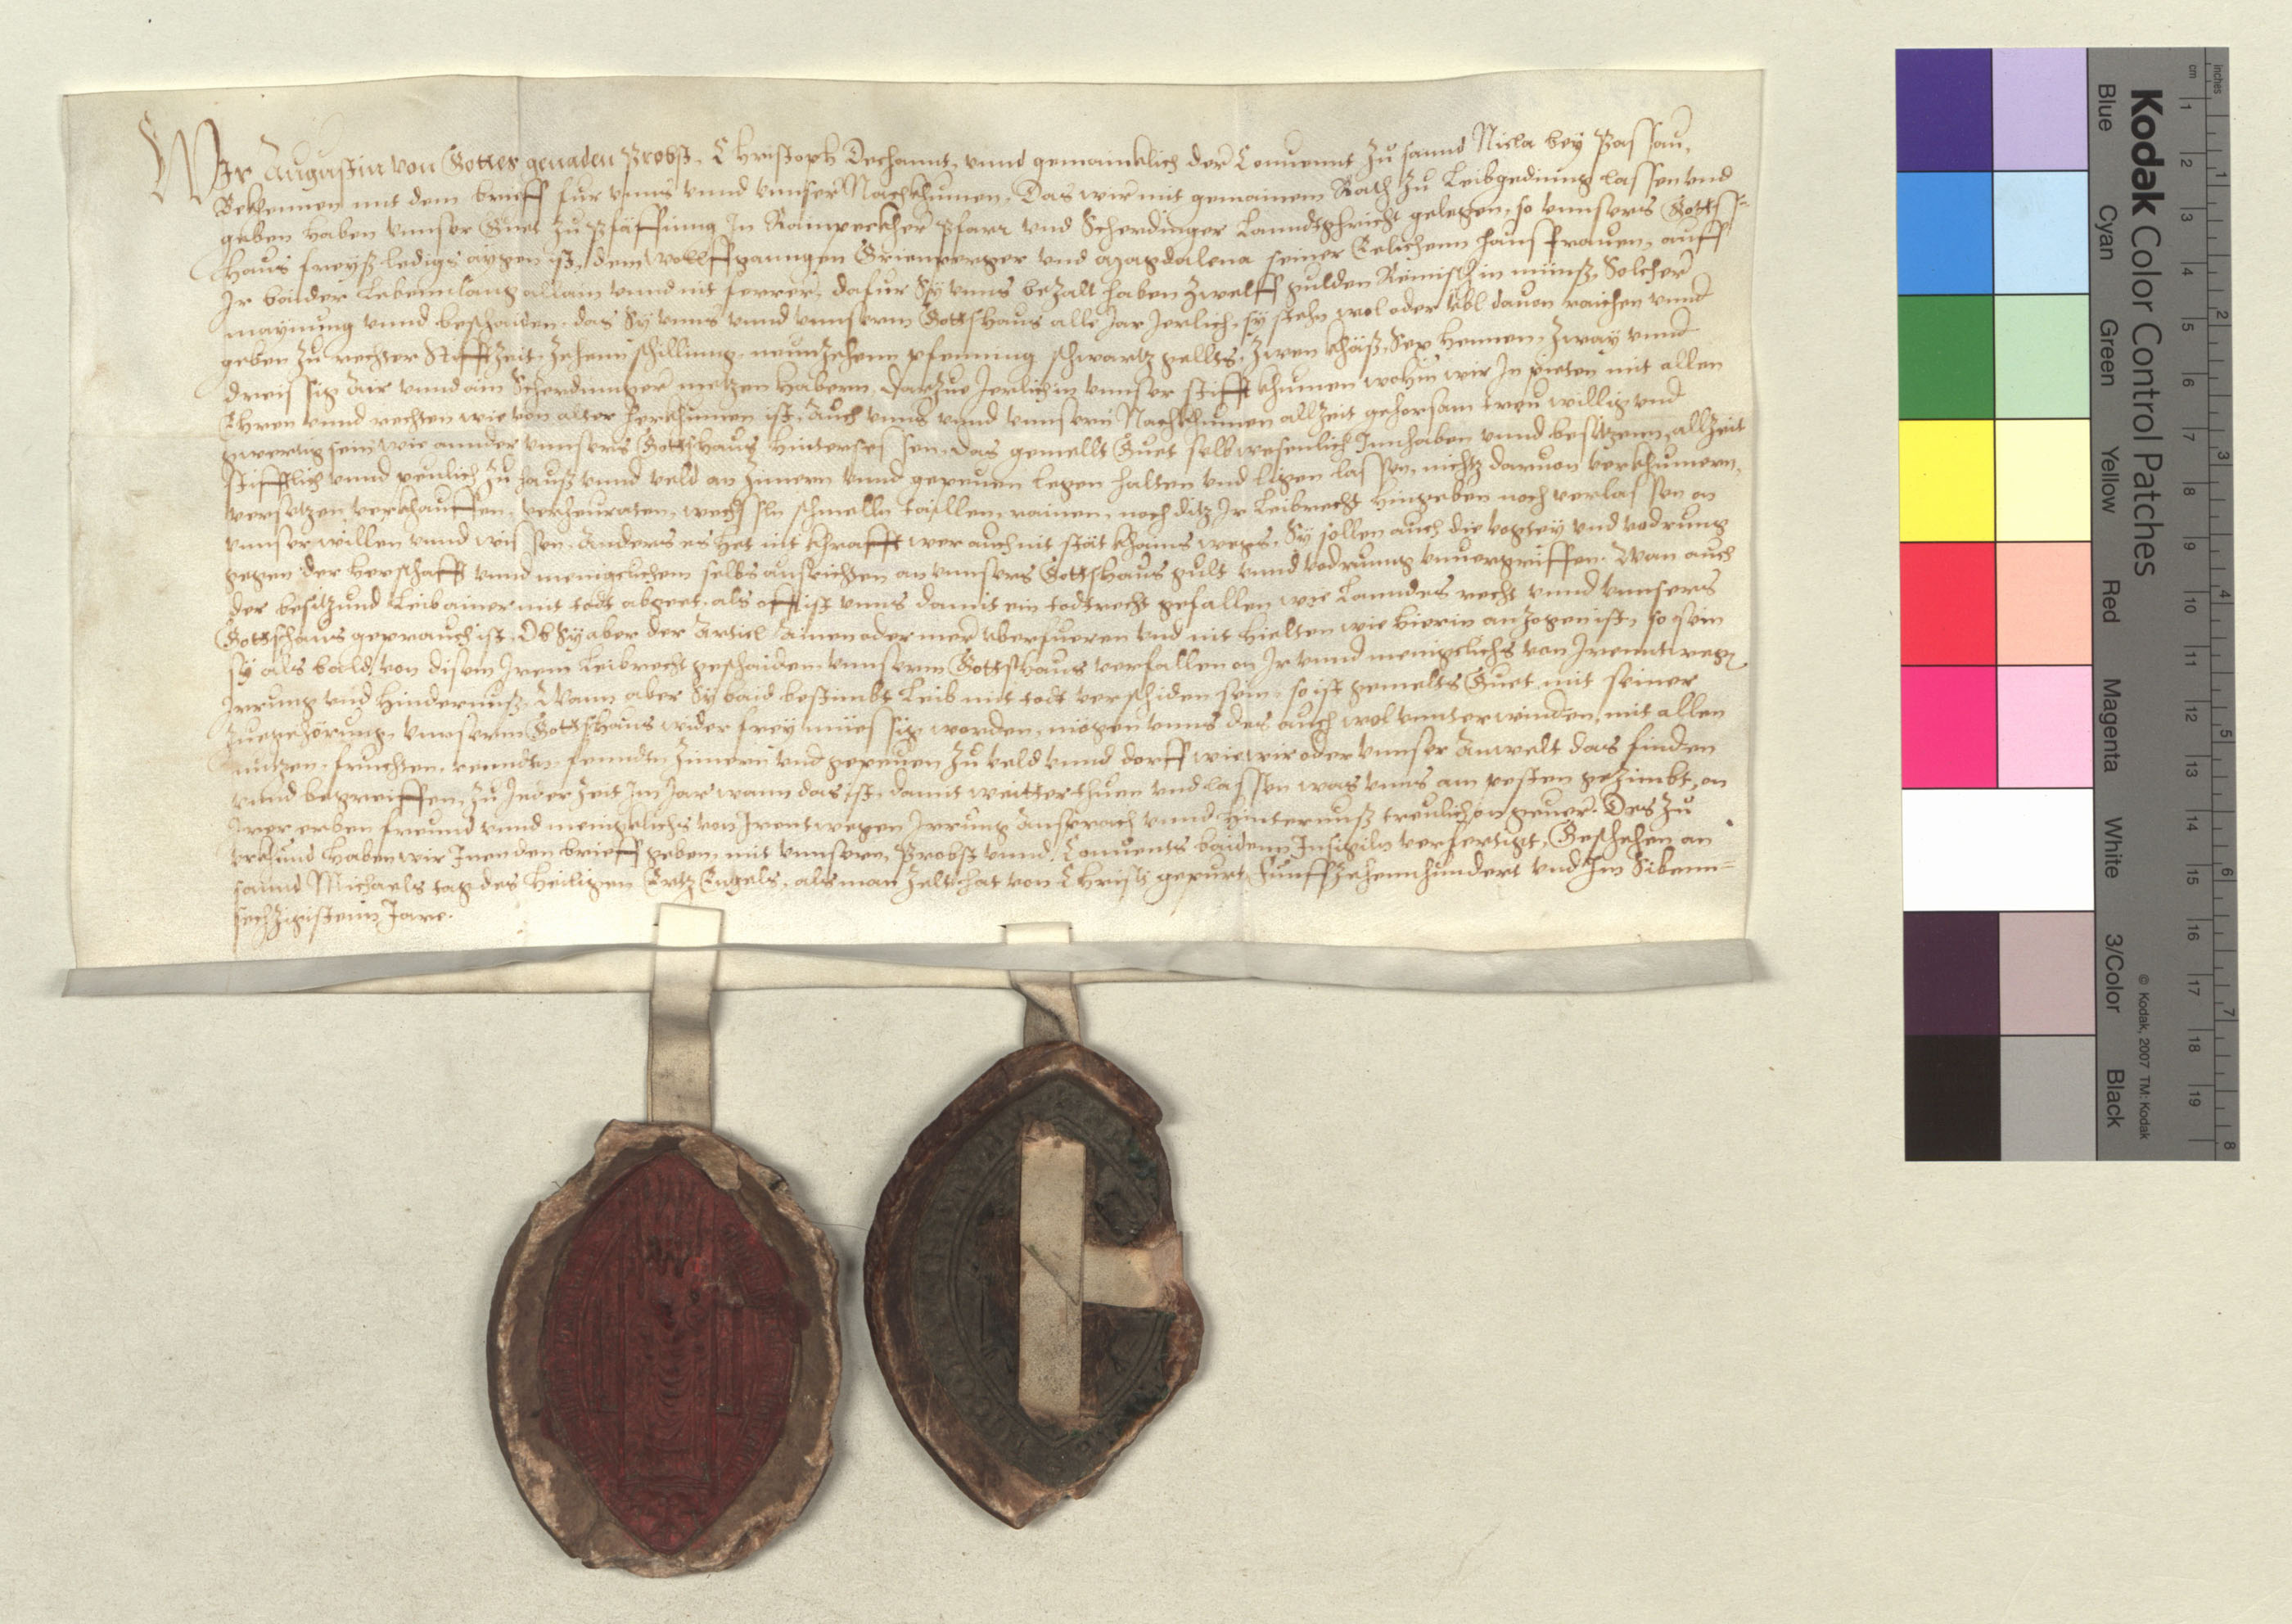 Wir Augustin von Gottes genaden Probst, Christoph Dechannt, vnnd gemaincklich der Conuennt zu sannd Nicla bey Passau,
Bekennen mit dem brieff fur vnns vnnd vnnser Nachkhumen, Das wir mit gemainem Rath zu Leibgeding lassen vnd
geben haben vnnser Guet zu Pfäffing In Rainpeckher Pfarr vnd Scherdinger Lanndtgricht gelegen, so vnnsers Gotts=
haus freys ledigs aygen ist, dem Wolffganngen Grienperger vnd Magdalena seiner Eelichenn hausfrauen, auff
Ir baider Lebennlang allain vnnd nit ferrer, dafur Sy vnns bezalt haben Zwelff gulden Reinisch in münß, Solcher
maynung vnnd beschaiden, das Sy vnns vnnd vnnserm Gottshaus alle Jar Jerlich, sy stehn wol oder Vbl dauon raichen vnnd
geben zu rechter Stifftzeit, Zehenn schilling, neunzehenn pfenning schwartz gellts, Zwen khäß, Sex hennen, Zway vnnd
dreissig Air vnnd ain Scherdinger metzen habern, Darzue Jerlich in vnnser stifft khumen wohin wir In pieten mit allen
Ehren vnnd rechten wie von alter herkhumen ist, Auch vnns vnnd vnnsern Nachkhumen allzeit gehorsam treu willig vnd
gwertig sein wie annder vnnsers Gottshaus hindersessen, das gemellt Guet selb wesenlich Innhaben vnnd besitzenn, allzeit
stifftlich vnnd peulich zu hauß vnnd veld an zimern vnnd gepeuen legen halten vnd ligen lassen, nichtz daruon verkhumern,
versetzen verkhauffen, verheuraten, wechssln schmelln taillen, rainen, noch ditz Ir Leibrecht hingeben noch verlassen on
vnnser willen vnnd wissen. Anders es het nit khrafft wer auch nit stät khains wegs. Sy sollen auch die vogtey vnd vodrung
gegen der herschafft vnnd menigclichem selbs ausrichten an vnnsers Gottshaus gult vnnd vodrung vnuergriffen. Wan auch
der besitzund Leib ainer mit todt abgeet, als offt ist vnns damit ein todtrecht gefallen wie Lanndes recht vnnd vnnsers
Gottshaus geprauch ist, Ob Sy aber der Articl Ainen oder mer vberfueren vnd nit hielten wie hierin anzogen ist, so sein
sy als bald von disem Irem Leibrecht geschaiden vnnserm Gottshaus verfallen on Ir vnnd menigclichs von Irenntwegen
Irrung vnd hindernuß. Wann aber Sy baid bestimbt Leib mit todt verschiden sein, so ist gemelts Guet mit seiner
Zuegehörung, vnnserm Gottshaus wider frey müessig worden, mögen vnns des auch wol vnnterwinden, mit allen
nutzen, fruchten, renndtn, fenndtn Zimern vnd gepeuen zu veld vnnd dorff wie wir oder vnnser Anwelt das finden
vnnd begreiffen, zu Jeder zeit Im Jar wann das ist, damit weitter thuen vnd lassen was vnns am pesten gezimbt, on
Irer erben freund vnnd menigclichs von Irentwegen Irrung Ansprach vnnd hinternuß treulich on geuer. Des zu
vrkhund haben wir Inen den brieff geben, mit vnnsern, Probst vnnd Conuents baidenn Insigiln verfertigt, Geschehen an
sannd Michaels tag des heiligen Ertz Engels, als man zelt hat von Christi gepurt Funffzehennhundert vnd Im Sibenn=
sechzigistenn Jare.
Kodak Color Control Patches
Blue Cyan Green Yellow Red Magenta White 3/Color Black
© Kodak, 2007 TM: Kodak
inches 1 2 3 4 5 6 7 8
cm 1 2 3 4 5 6 7 8 9 10 11 12 13 14 15 16 17 18 19